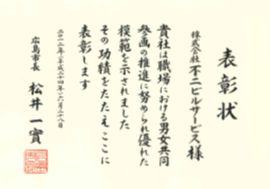 表彰状
株式会社不二ビルサービス様
貴社は職場における男女共同
参画の推進に努められ優れた
模範を示されました
その功績をたたえここに
表彰します
広島市長 松井一實